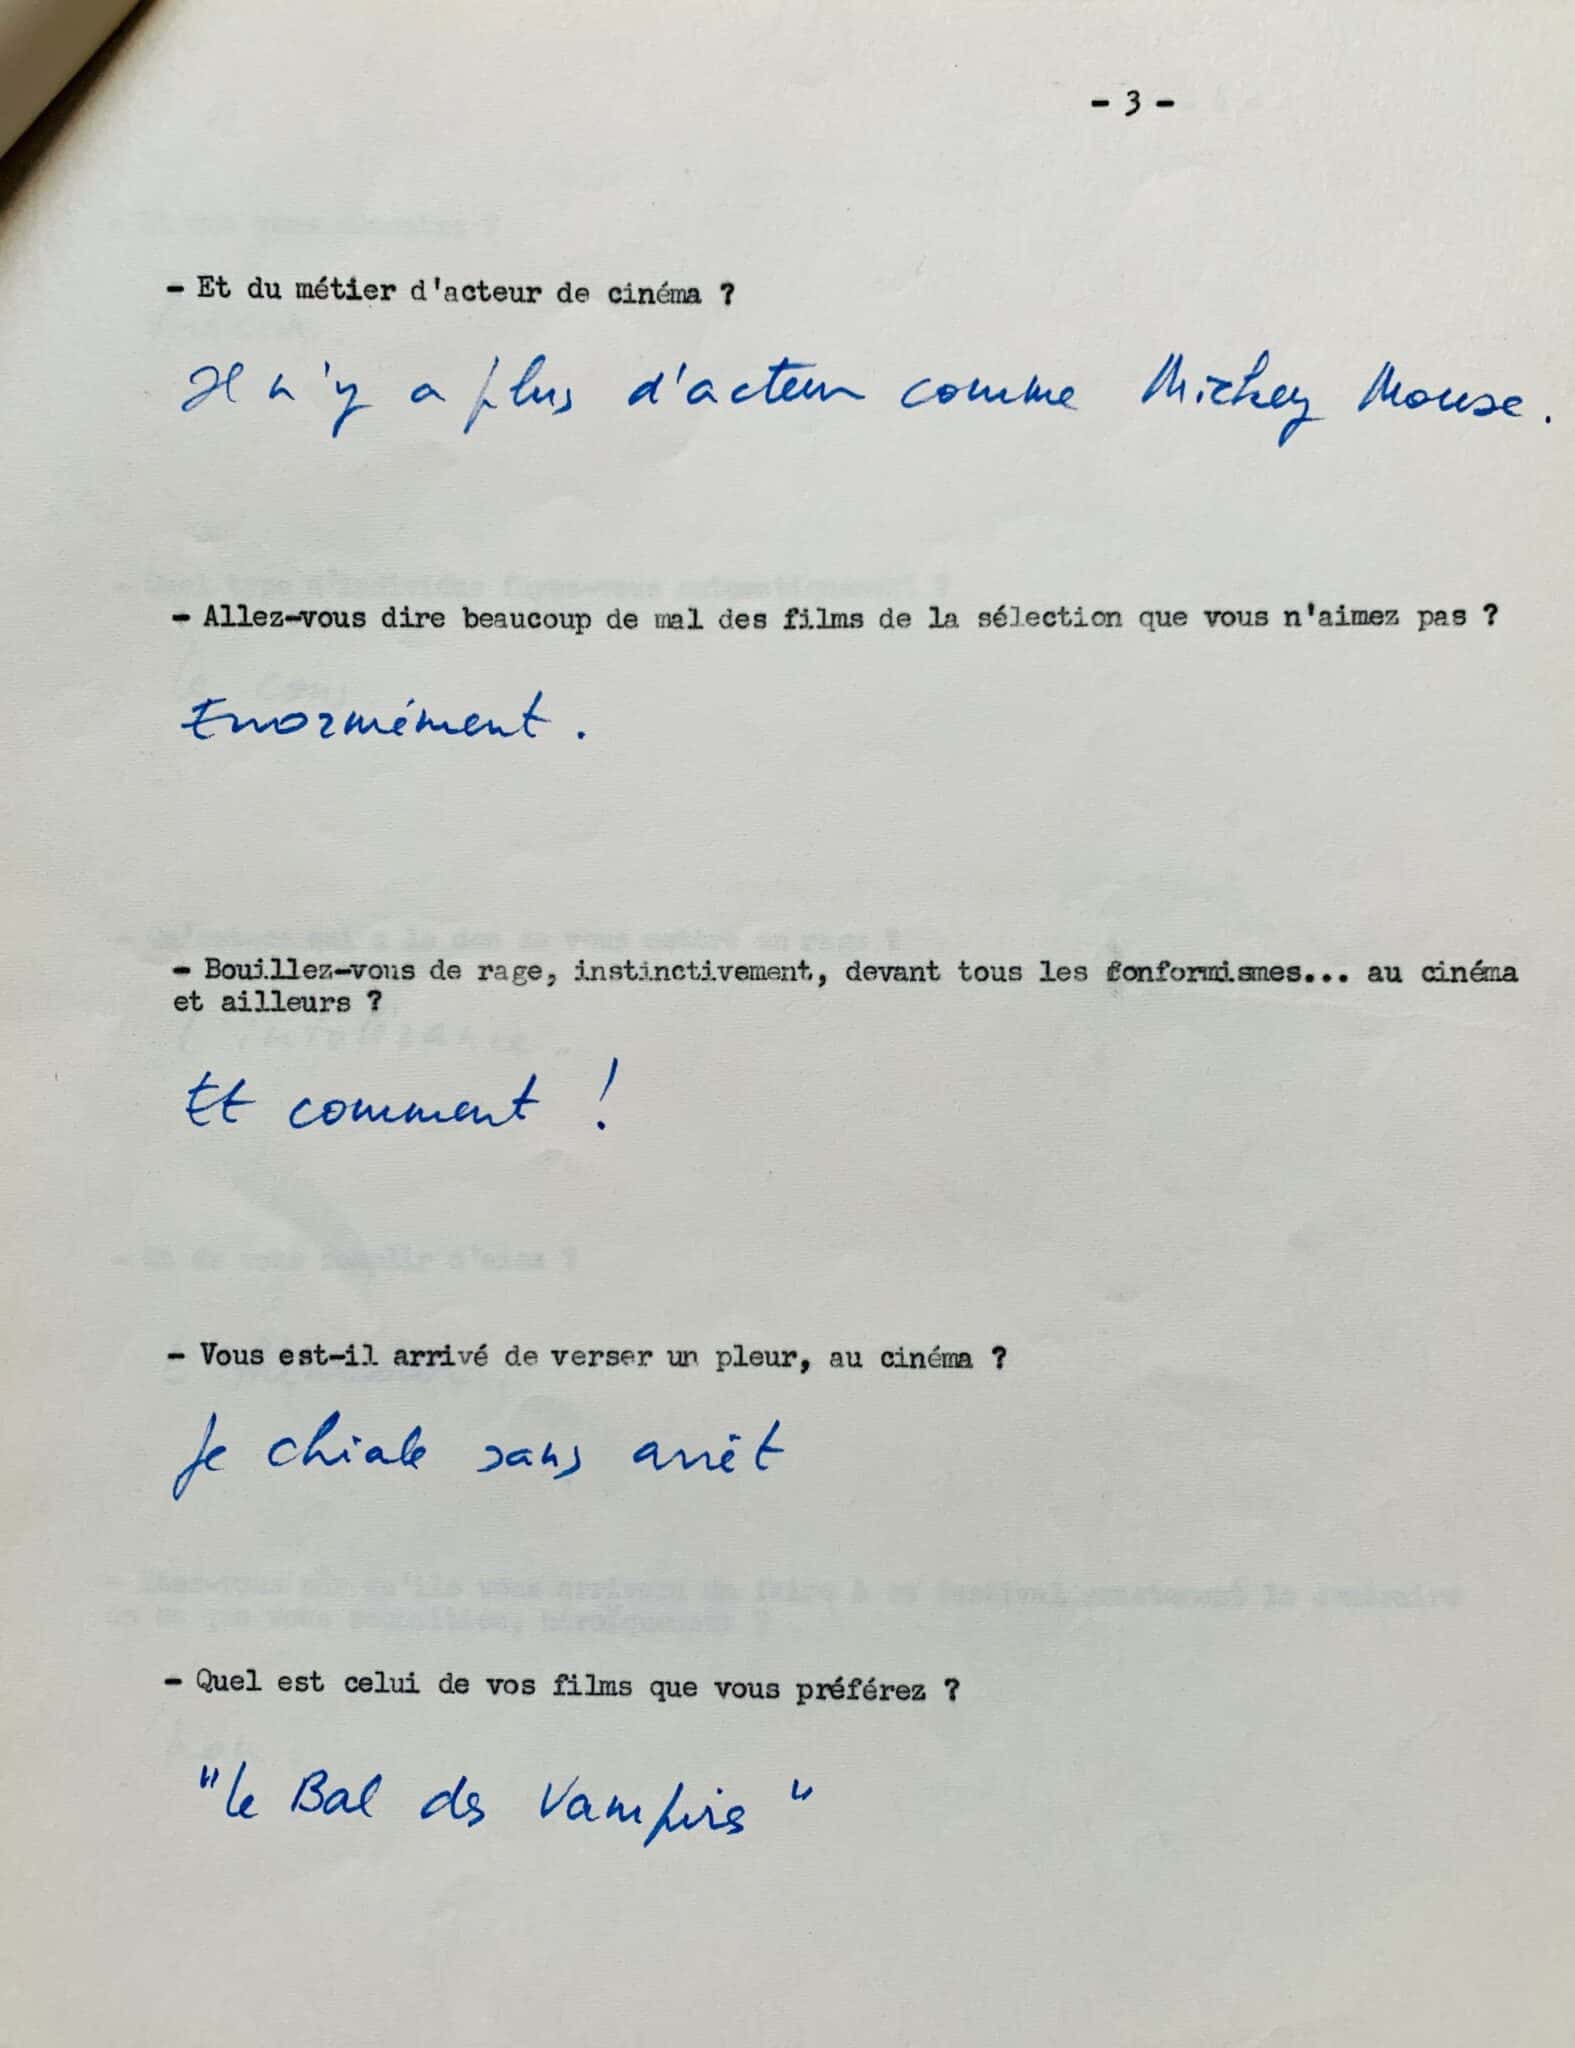 - 3 -
- Et du métier d'acteur de cinéma ?
Il n'y a plus d'acteur comme Mickey Mouse.
- Allez-vous dire beaucoup de mal des films de la sélection que vous n'aimez pas ?
Enormément.
- Bouillez-vous de rage, instinctivement, devant tous les conformismes... au cinéma
et ailleurs ?
Et comment !
- Vous est-il arrivé de verser un pleur, au cinéma ?
Je chiale sans arrêt
- Quel est celui de vos films que vous préférez ?
"Le Bal des Vampires"